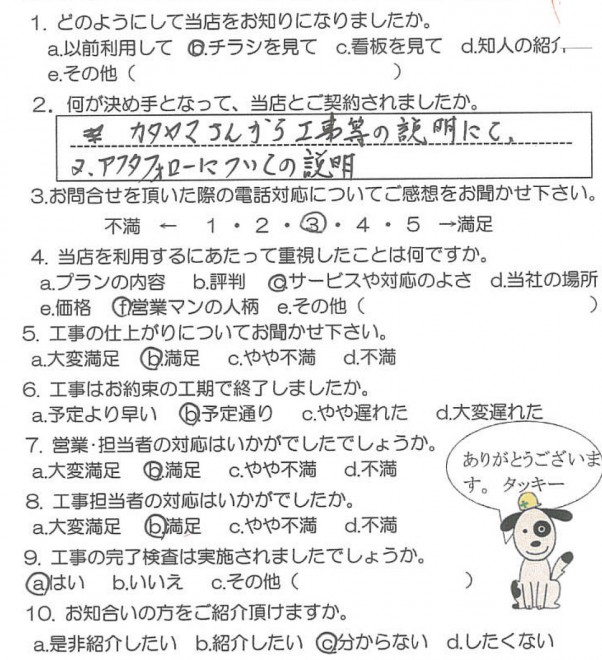 1. どのようにして当店をお知りになりましたか。
a.以前利用して b.チラシを見て c.看板を見て d.知人の紹介
e.その他（ ）
2. 何が決め手となって、当店とご契約されましたか。
カタヤマさんから工事等の説明にて、
又、アフタフォローについての説明
3.お問合せを頂いた際の電話対応についてご感想をお聞かせ下さい。
不満 ← 1・2・3・4・5 →満足
4. 当店を利用するにあたって重視したことは何ですか。
a.プランの内容 b.評判 c.サービスや対応のよさ d.当社の場所
e.価格 f.営業マンの人柄 e.その他（ ）
5. 工事の仕上がりについてお聞かせ下さい。
a.大変満足 b.満足 c.やや不満 d.不満
6. 工事はお約束の工期で終了しましたか。
a.予定より早い b.予定通り c.やや遅れた d.大変遅れた
7. 営業・担当者の対応はいかがでしたでしょうか。
a.大変満足 b.満足 c.やや不満 d.不満
ありがとうございま
す。 タッキー
8. 工事担当者の対応はいかがでしたか。
a.大変満足 b.満足 c.やや不満 d.不満
9. 工事の完了検査は実施されましたでしょうか。
a.はい b.いいえ c.その他（ ）
10. お知合いの方をご紹介頂けますか。
a.是非紹介したい b.紹介したい c.分からない d.したくない